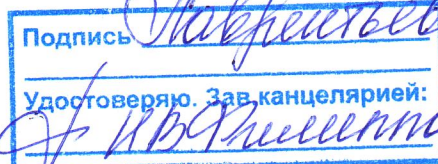 Подпись Лаврентьев
Удостоверяю. Зав.канцелярией:
Н.В.Филиппо